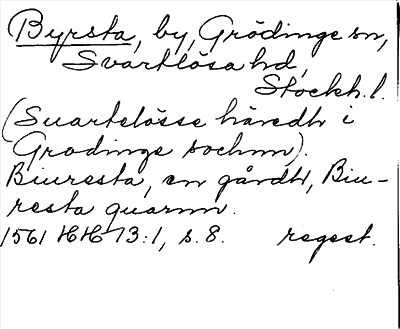 Byrsta, by, Grödinge sn,
Svartlösa hd,
Stockh. l.
(Suartelösse häredh i
Grodinge sochnn).
Biuresta, en gårdh, Biu-
resta quarnn.
1561 HH 13:1, s. 8. regest.